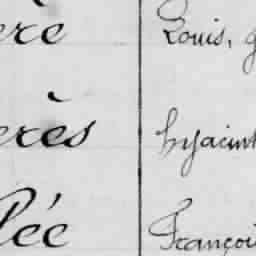 ère Louis, g
erès hyacint
lée Françoi